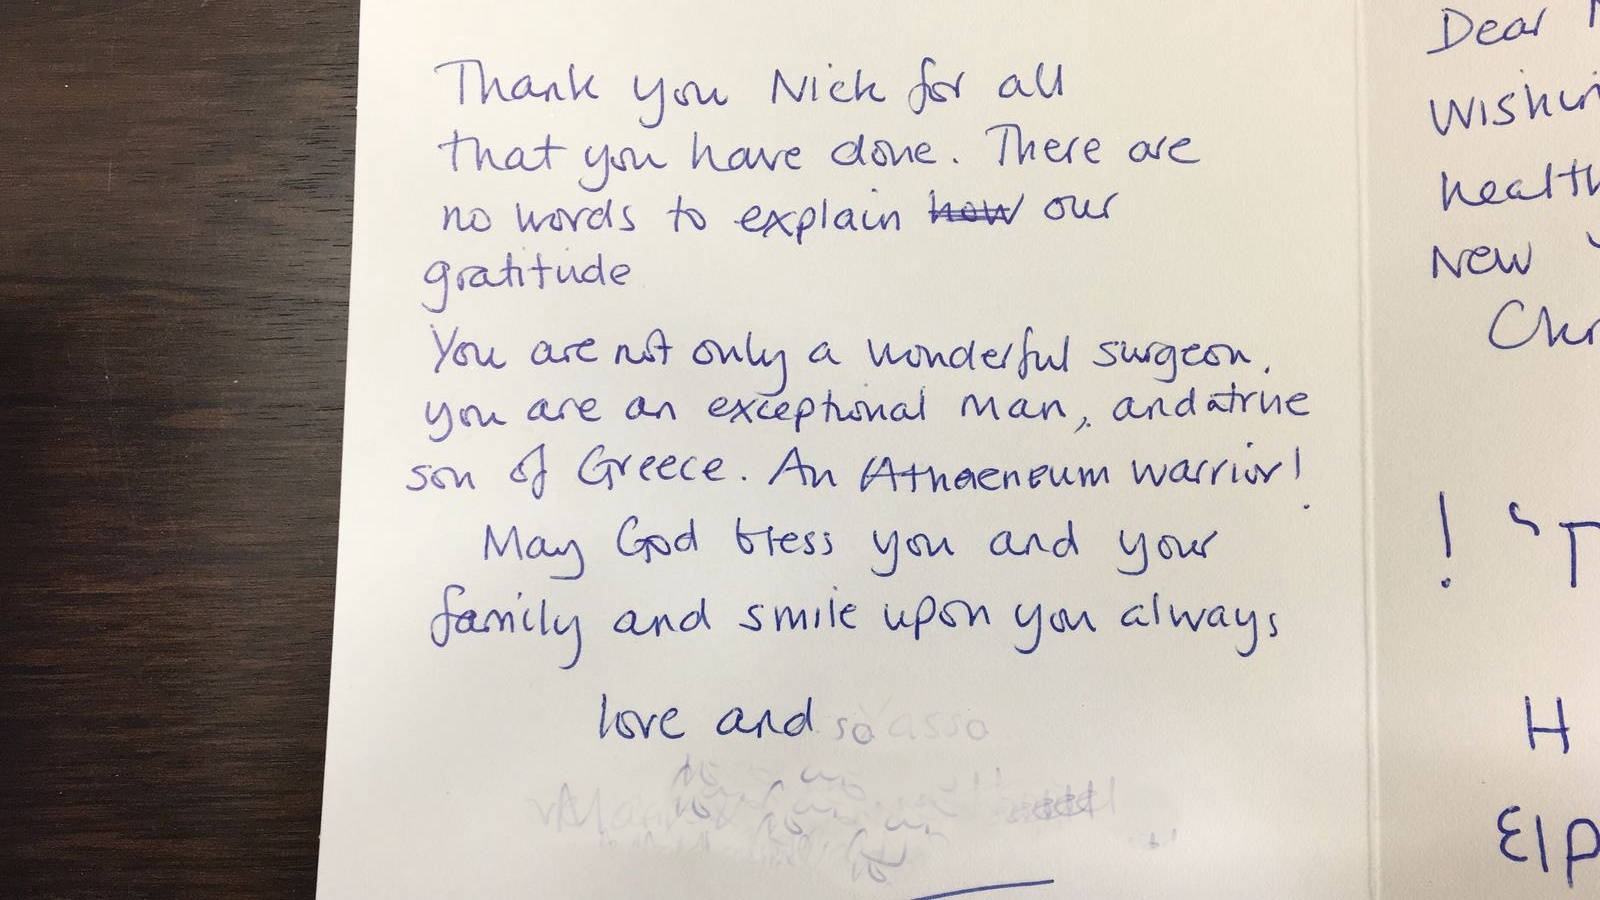 Thank you Nick for all
that you have done. There are
no words to explain how our
gratitude
You are not only a wonderful surgeon,
you are an exceptional man, and a true
son of Greece. An Athaeneum warrior!
May God bless you and your
family and smile upon you always
love and so
Dear
New
H